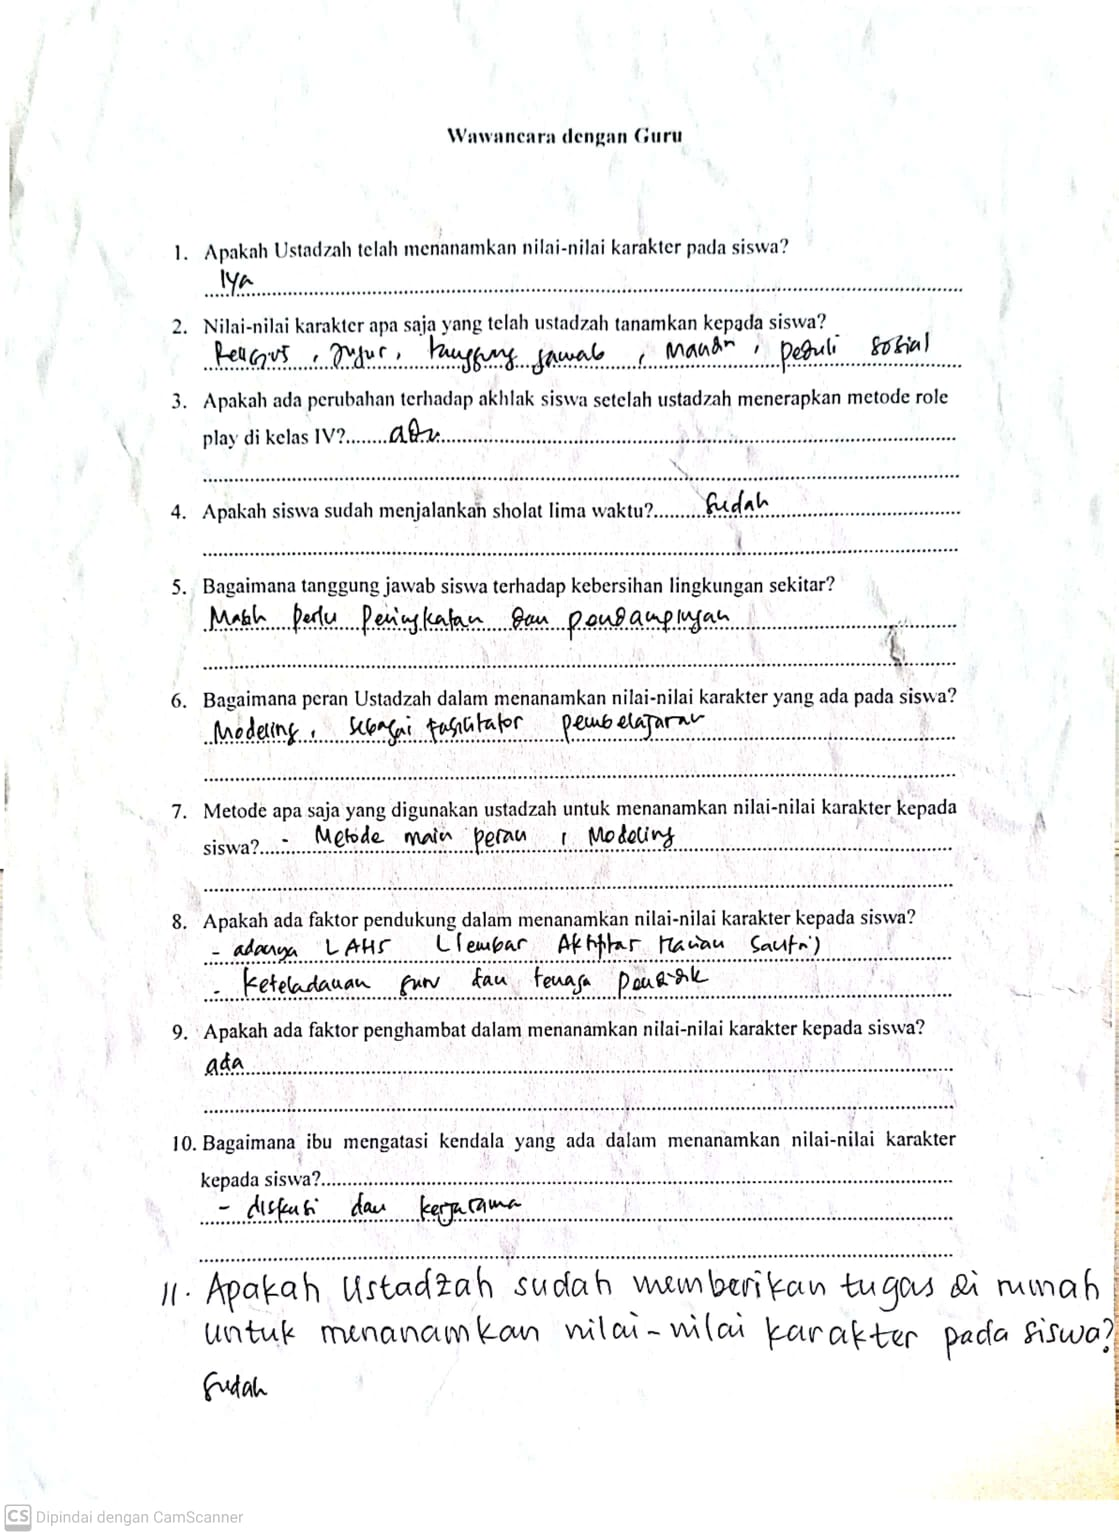 Wawancara dengan Guru
1. Apakah Ustadzah telah menanamkan nilai-nilai karakter pada siswa?
Iya
2. Nilai-nilai karakter apa saja yang telah ustadzah tanamkan kepada siswa?
Religus, jujur, tanggung jawab, mandiri, peduli sosial
3. Apakah ada perubahan terhadap akhlak siswa setelah ustadzah menerapkan metode role
play di kelas IV?........ada
4. Apakah siswa sudah menjalankan sholat lima waktu?.........Sudah
5. Bagaimana tanggung jawab siswa terhadap kebersihan lingkungan sekitar?
Masih perlu peningkatan dan pendampingan
6. Bagaimana peran Ustadzah dalam menanamkan nilai-nilai karakter yang ada pada siswa?
Modeling, sebagai fasilitator pembelajaran
7. Metode apa saja yang digunakan ustadzah untuk menanamkan nilai-nilai karakter kepada
siswa?...... - Metode main peran, Modeling
8. Apakah ada faktor pendukung dalam menanamkan nilai-nilai karakter kepada siswa?
- adanya LAHS (lembar Aktifitas Harian Santri)
- keteladanan guru dan tenaga pendidik
9. Apakah ada faktor penghambat dalam menanamkan nilai-nilai karakter kepada siswa?
ada
10. Bagaimana ibu mengatasi kendala yang ada dalam menanamkan nilai-nilai karakter
kepada siswa?
- diskusi dan kerjasama
11. Apakah Ustadzah sudah memberikan tugas di rumah
untuk menanamkan nilai-nilai karakter pada siswa?
Sudah
CS Dipindai dengan CamScanner